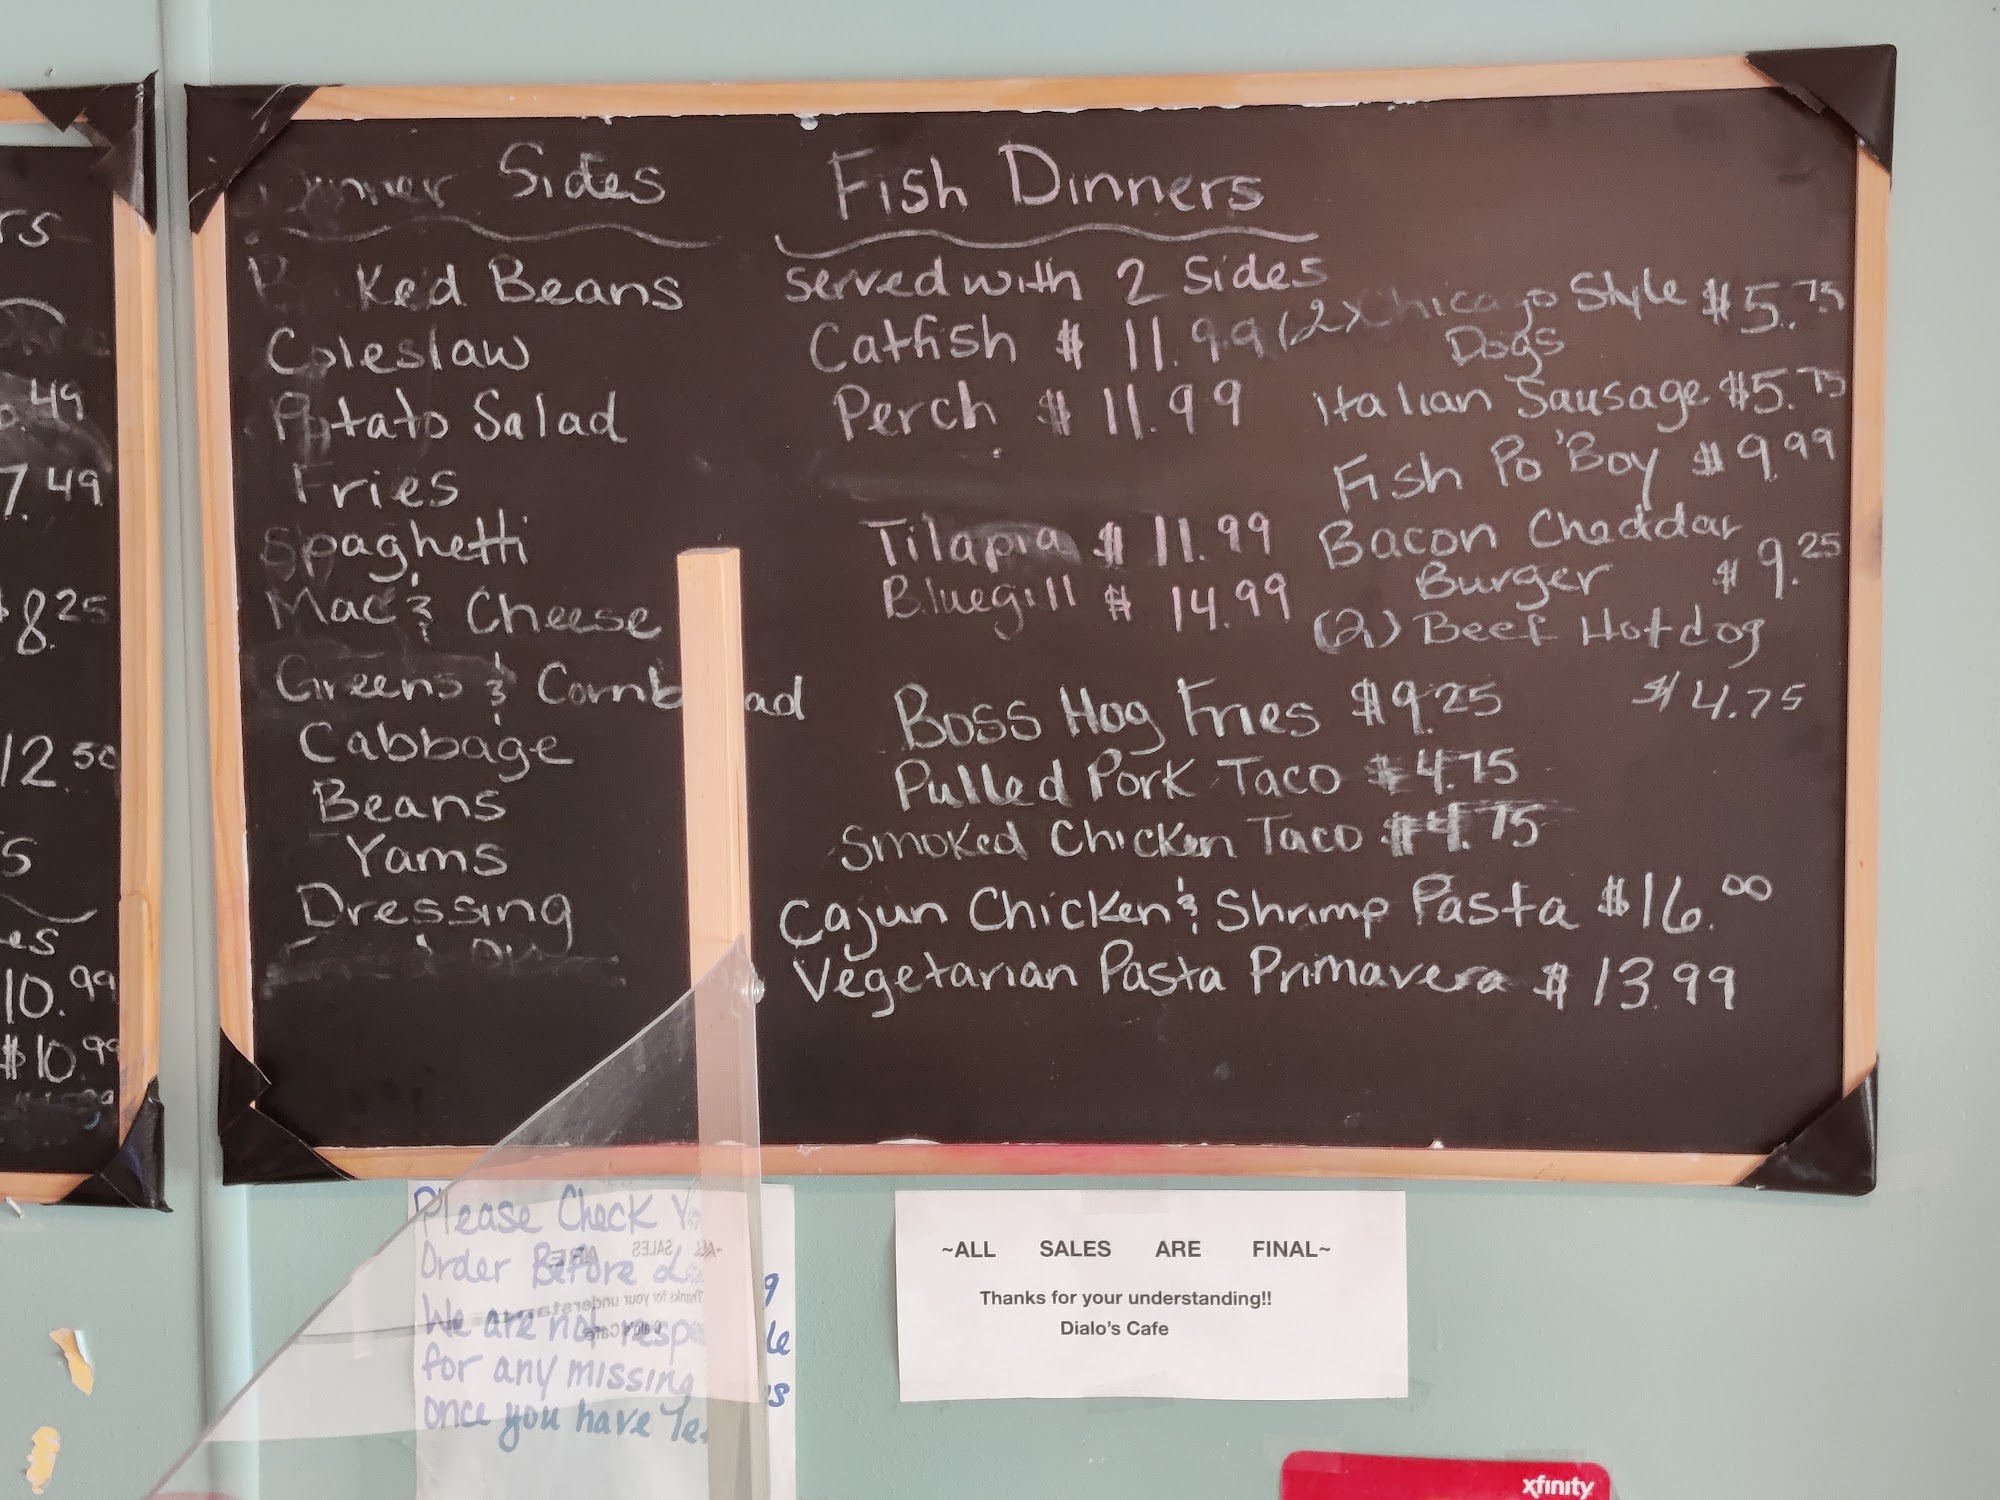 rs
.49
7.49
$8.25
12.50
5
es
10.99
$10.99
Dinner Sides
Baked Beans
Coleslaw
Potato Salad
Fries
Spaghetti
Mac & Cheese
Greens & Cornb ad
Cabbage
Beans
Yams
Dressing
Fish Dinners
served with 2 Sides
Catfish $ 11.99
Perch $ 11.99
Tilapia $ 11.99
Bluegill $ 14.99
(2) Chicago Style $5.75
Dogs
Italian Sausage $5.75
Fish Po'Boy $9.99
Bacon Cheddar
Burger $9.25
(2) Beef Hotdog
$4.75
Boss Hog Fries $9.25
Pulled Pork Taco $4.75
Smoked Chicken Taco $4.75
Cajun Chicken & Shrimp Pasta $16.00
Vegetarian Pasta Primavera $13.99
Please Check Yo
Order Before g
We are not resp le
for any missing s
once you have
~ALL SALES ARE FINAL~
Thanks for your understanding!!
Dialo's Cafe
xfinity